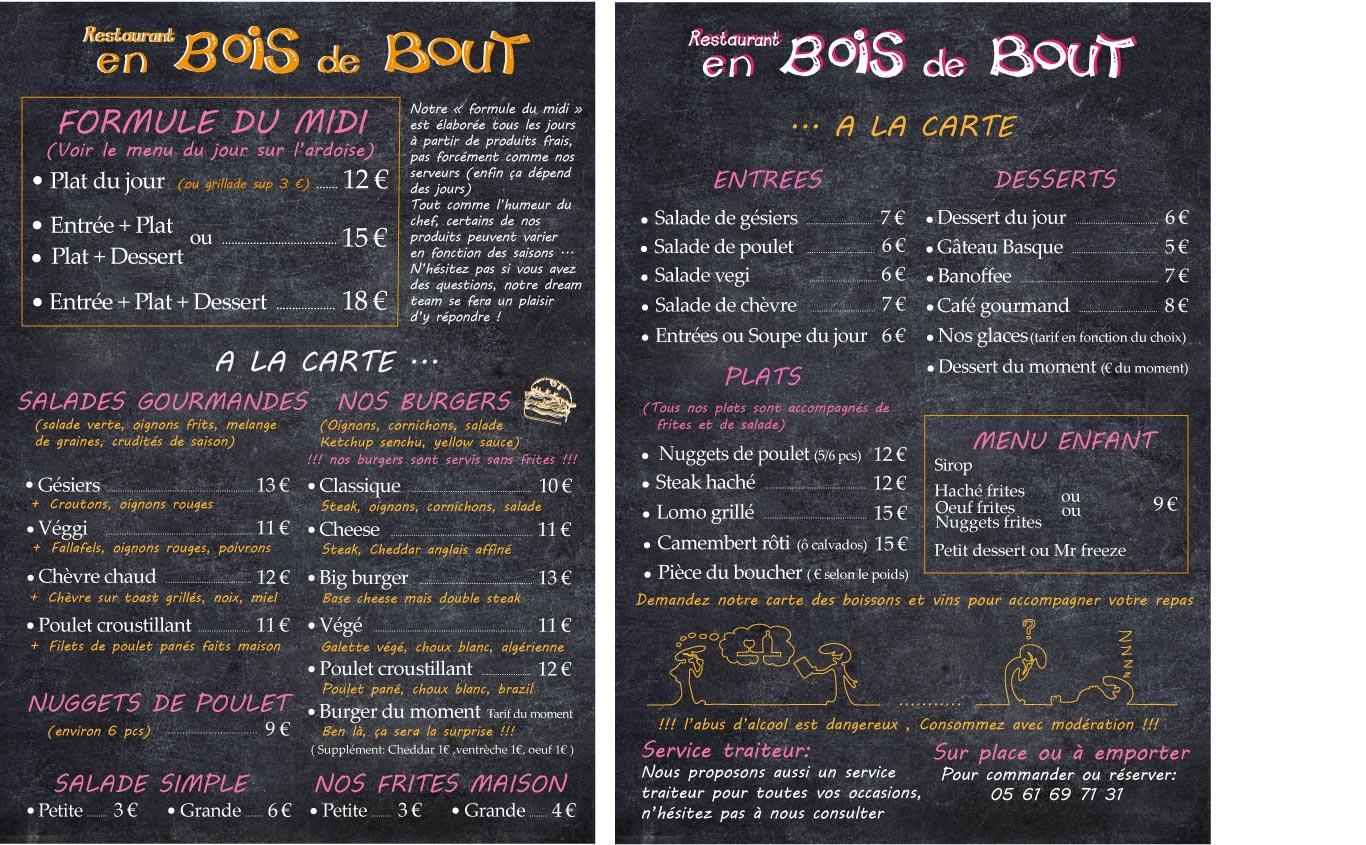 Restaurant
en BOiS de BOUT
FORMULE DU MIDI
(Voir le menu du jour sur l'ardoise)
• Plat du jour (ou grillade sup 3 €) ...... 12 €
• Entrée + Plat
ou ........................ 15 €
• Plat + Dessert
• Entrée + Plat + Dessert ............... 18 €
Notre « formule du midi »
est élaborée tous les jours
à partir de produits frais,
pas forcément comme nos
serveurs (enfin ça dépend
des jours)
Tout comme l'humeur du
chef, certains de nos
produits peuvent varier
en fonction des saisons ...
N'hésitez pas si vous avez
des questions, notre dream
team se fera un plaisir
d'y répondre !
A LA CARTE ...
SALADES GOURMANDES
(salade verte, oignons frits, melange
de graines, crudités de saison)
• Gésiers ............... 13 €
+ Croutons, oignons rouges
• Véggi ............... 11 €
+ Fallafels, oignons rouges, poivrons
• Chèvre chaud ............... 12 €
+ Chèvre sur toast grillés, noix, miel
• Poulet croustillant ............... 11 €
+ Filets de poulet panés faits maison
NUGGETS DE POULET
(environ 6 pcs) ............... 9 €
SALADE SIMPLE
• Petite ...... 3 € • Grande ...... 6 €
NOS BURGERS
(Oignons, cornichons, salade
Ketchup senchu, yellow sauce)
!!! nos burgers sont servis sans frites !!!
• Classique ............... 10 €
Steak, oignons, cornichons, salade
• Cheese ............... 11 €
Steak, Cheddar anglais affiné
• Big burger ............... 13 €
Base cheese mais double steak
• Végé ............... 11 €
Galette végé, choux blanc, algérienne
• Poulet croustillant ............... 12 €
Poulet pané, choux blanc, brazil
• Burger du moment Tarif du moment
Ben là, ça sera la surprise !!!
( Supplément: Cheddar 1€ ,ventrèche 1€, oeuf 1€ )
NOS FRITES MAISON
• Petite ...... 3 € • Grande ...... 4 €
Restaurant
en BOiS de BOUT
... A LA CARTE
ENTREES
• Salade de gésiers ............... 7 €
• Salade de poulet ............... 6 €
• Salade vegi ............... 6 €
• Salade de chèvre ............... 7 €
• Entrées ou Soupe du jour 6 €
PLATS
(Tous nos plats sont accompagnés de
frites et de salade)
• Nuggets de poulet (5/6 pcs) 12 €
• Steak haché ............... 12 €
• Lomo grillé ............... 15 €
• Camembert rôti (ô calvados) 15 €
• Pièce du boucher ( € selon le poids)
DESSERTS
• Dessert du jour ............... 6 €
• Gâteau Basque ............... 5 €
• Banoffee ............... 7 €
• Café gourmand ............... 8 €
• Nos glaces (tarif en fonction du choix)
• Dessert du moment (€ du moment)
MENU ENFANT
Sirop
Haché frites ou
Oeuf frites ou 9 €
Nuggets frites
Petit dessert ou Mr freeze
Demandez notre carte des boissons et vins pour accompagner votre repas
?
ZZNNN
...........
!!! l'abus d'alcool est dangereux , Consommez avec modération !!!
Service traiteur:
Nous proposons aussi un service
traiteur pour toutes vos occasions,
n'hésitez pas à nous consulter
Sur place ou à emporter
Pour commander ou réserver:
05 61 69 71 31